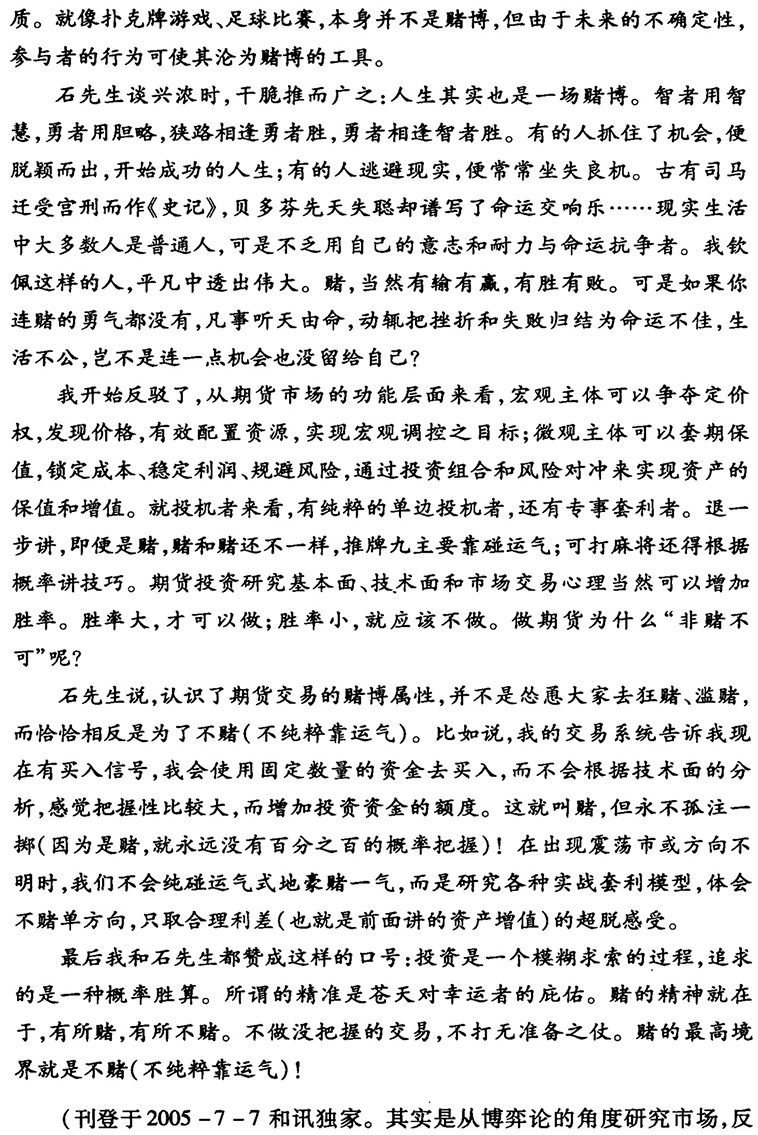 质。就像扑克牌游戏、足球比赛,本身并不是赌博,但由于未来的不确定性,
参与者的行为可使其沦为赌博的工具。
石先生谈兴浓时,干脆推而广之:人生其实也是一场赌博。智者用智
慧,勇者用胆略,狭路相逢勇者胜,勇者相逢智者胜。有的人抓住了机会,便
脱颖而出,开始成功的人生;有的人逃避现实,便常常坐失良机。古有司马
迁受宫刑而作《史记》,贝多芬先天失聪却谱写了命运交响乐……现实生活
中大多数人是普通人,可是不乏用自己的意志和耐力与命运抗争者。我钦
佩这样的人,平凡中透出伟大。赌,当然有输有赢,有胜有败。可是如果你
连赌的勇气都没有,凡事听天由命,动辄把挫折和失败归结为命运不佳,生
活不公,岂不是连一点机会也没留给自己?
我开始反驳了,从期货市场的功能层面来看,宏观主体可以争夺定价
权,发现价格,有效配置资源,实现宏观调控之目标;微观主体可以套期保
值,锁定成本、稳定利润、规避风险,通过投资组合和风险对冲来实现资产的
保值和增值。就投机者来看,有纯粹的单边投机者,还有专事套利者。退一
步讲,即便是赌,赌和赌还不一样,推牌九主要靠碰运气;可打麻将还得根据
概率讲技巧。期货投资研究基本面、技术面和市场交易心理当然可以增加
胜率。胜率大,才可以做;胜率小,就应该不做。做期货为什么“非赌不
可”呢?
石先生说,认识了期货交易的赌博属性,并不是怂恿大家去狂赌、滥赌,
而恰恰相反是为了不赌(不纯粹靠运气)。比如说,我的交易系统告诉我现
在有买入信号,我会使用固定数量的资金去买入,而不会根据技术面的分
析,感觉把握性比较大,而增加投资资金的额度。这就叫赌,但永不孤注一
掷(因为是赌,就永远没有百分之百的概率把握)!在出现震荡市或方向不
明时,我们不会纯碰运气式地豪赌一气,而是研究各种实战套利模型,体会
不赌单方向,只取合理利差(也就是前面讲的资产增值)的超脱感受。
最后我和石先生都赞成这样的口号:投资是一个模糊求索的过程,追求
的是一种概率胜算。所谓的精准是苍天对幸运者的庇佑。赌的精神就在
于,有所赌,有所不赌。不做没把握的交易,不打无准备之仗。赌的最高境
界就是不赌(不纯粹靠运气)!
(刊登于2005-7-7和讯独家。其实是从博弈论的角度研究市场,反